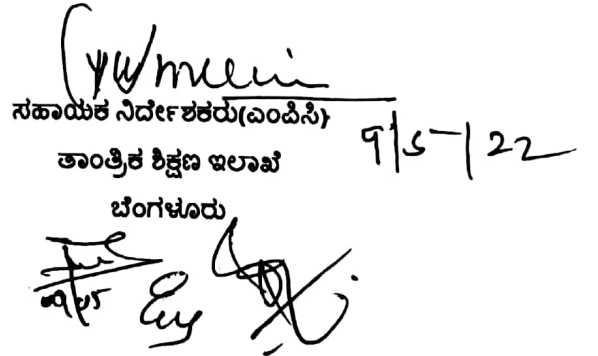 ಸಹಾಯಕ ನಿರ್ದೇಶಕರು(ಎಂಪಿಸಿ)
9/5/22
ತಾಂತ್ರಿಕ ಶಿಕ್ಷಣ ಇಲಾಖೆ
ಬೆಂಗಳೂರು
09/05